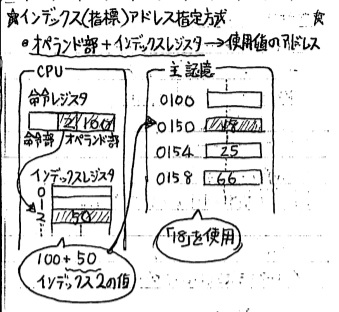 ☆インデックス(指標)アドレス指定方式 ☆
・オペランド部+インデックスレジスタ→使用値のアドレス
CPU
命令レジスタ
2 100
命令部 オペランド部
インデックスレジスタ
0
1
2 50
100+50
インデックス2の値
主記憶
0100
0150 18
0154 25
0158 66
「18」を使用